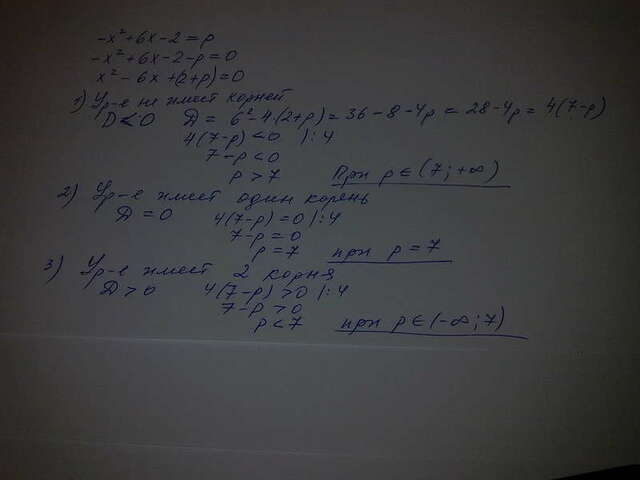 -x²+6x-2=p
-x²+6x-2-p=0
x²-6x+(2+p)=0
1) Ур-е не имеет корней
D<0 D = 6²-4(2+p)=36-8-4p=28-4p=4(7-p)
4(7-p)<0 |:4
7-p<0
p>7 При p∈(7;+∞)
2) Ур-е имеет один корень
D=0 4(7-p)=0 |:4
7-p=0
p=7 при p=7
3) Ур-е имеет 2 корня
D>0 4(7-p)>0 |:4
7-p>0
p<7 при p∈(-∞;7)